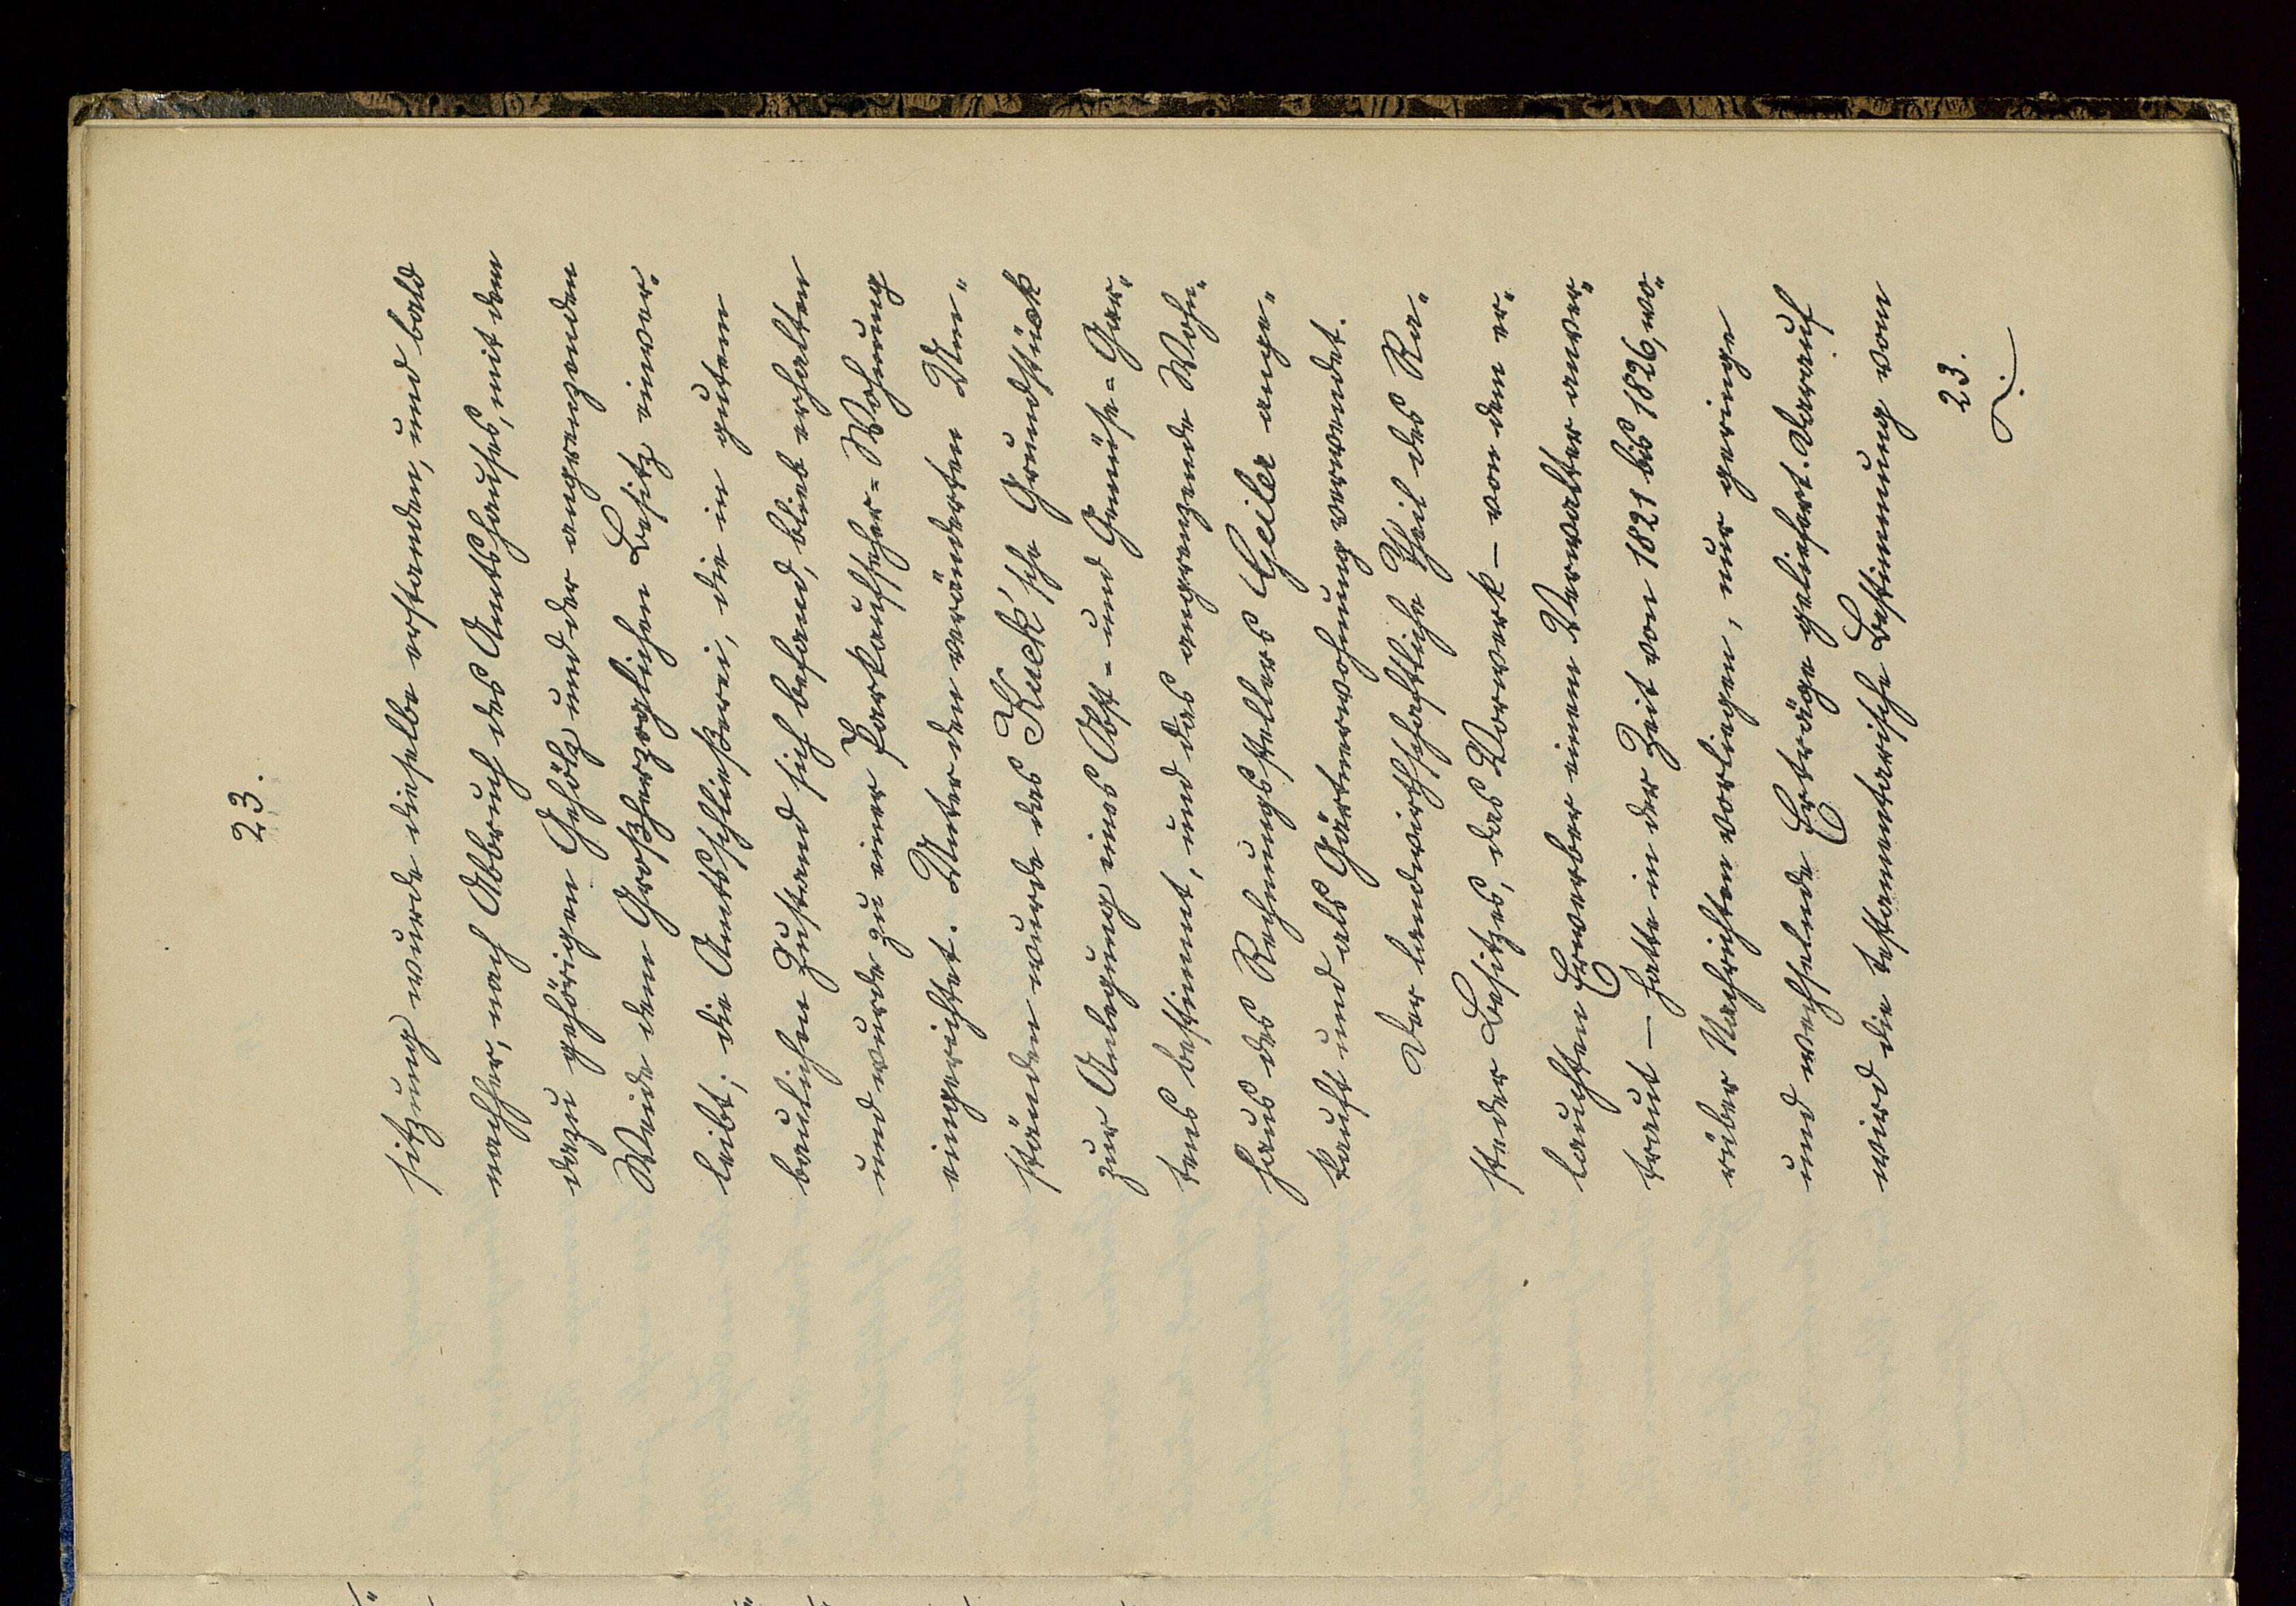 23.
sitzung wurde dieselbe erstanden, und bald
nachher, nach Abbruch des Amtshauses, mit dem
dazu gehörigen Gehölz und der angrenzenden
Weide dem Großherzoglichen Besitz einver-
leibt; die Amtsschließerei, die in gutem
baulichen Zustand sich befand, blieb erhalten
und wurde zu einer Parkaufseher-Wohnung
eingerichtet. Unter den veränderten Um-
ständen wurde das Kuck'sche Grundstück
zur Anlegung eines Obst- und Gemüse-Gar-
tens bestimmt, und das angrenzende Wohn-
haus des Rechnungsstellers Geiler ange-
kauft und als Gärtnerwohnung verwendet.
Der landwirthschaftliche Theil des Ra-
steder Besitzes, das Vorwerk – von dem er-
lauchten Erwerber einem Verwalter anver-
traut – hatte in der Zeit von 1821 bis 1826, wo-
rüber Nachrichten vorliegen, nur geringe
und wechselnde Erträge geliefert. Darauf
wird die testamentarische Bestimmung vom
23.